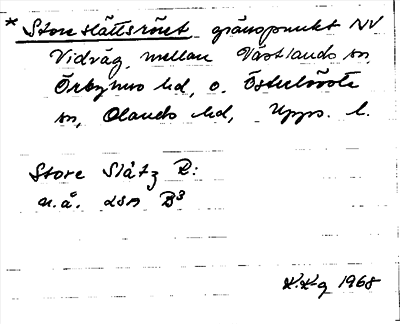 * Store slåttsröset gränspunkt NV
Vidväg, mellan Västlands sn,
Örbyhus hd, o. Österlövsta
sn, Olands hd, Upps. l.
Store Slåtz R:
u.å. LSA B3
1968